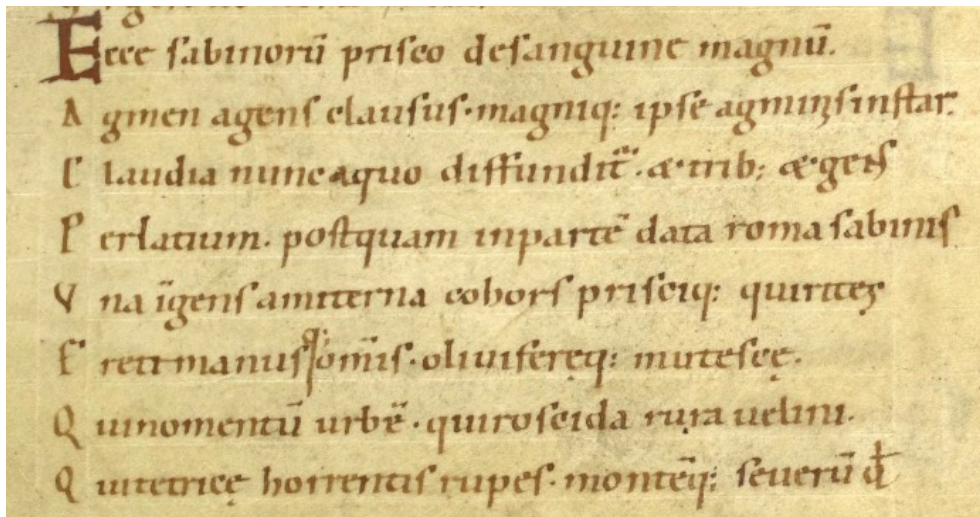 Ecce sabinorū prisco desanguine magnū.
A gmen agens clausus· magniq: ipse agminis instar.
C laudia nunc aquo diffundit᷒· & trib; & gens
P erlatium. postquam inpartē data roma sabinis
V na īgens amiterna cohors prisciq: quirites
E reti manus om̄is· oliuiferęq: mutescę.
Q uinomentū urbē· quiroscida rura uelini.
Q uitetricę horrentis rupes· montēq: seuerū